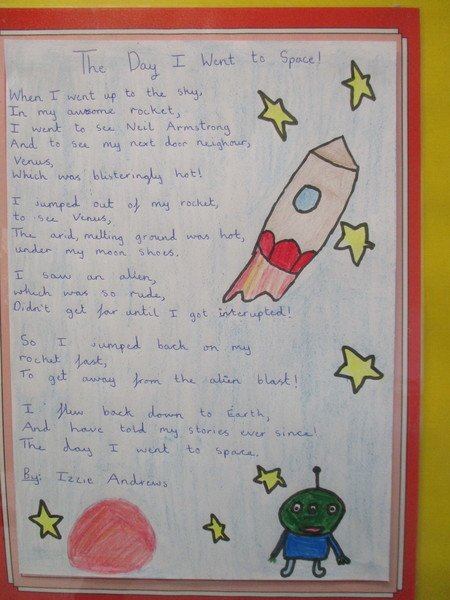 The Day I Went to Space!
When I went up to the sky,
In my awsome rocket,
I went to see Neil Armstrong
And to see my next door neighour,
Venus,
Which was blisteringly hot!
I jumped out of my rocket,
to see Venus,
The arid, melting ground was hot,
under my moon shoes.
I saw an alien,
which was so rude,
Didn't get far until I got interupted!
So I jumped back on my
rocket fast,
To get away from the alien blast!
I flew back down to Earth,
And have told my stories ever since!
The day I went to space.
By: Izzie Andrews